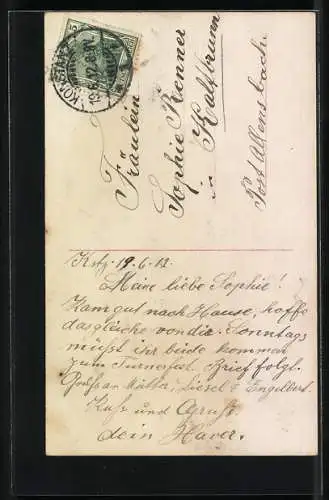 KONSTANZ
Fräulein
Sophie Renner
in Kaltbrunn
Post Allensbach.
Kstz. 19.6.12.
Meine liebe Sophie!
Kam gut nach Hause, hoffe
das gleiche von dir. Sonntags
müsst ihr beide kommen
zum Turnerfest. Brief folgt.
Gruß an Mutter, Liesel & Engelbert
Kuß und Gruß
dein Xaver.